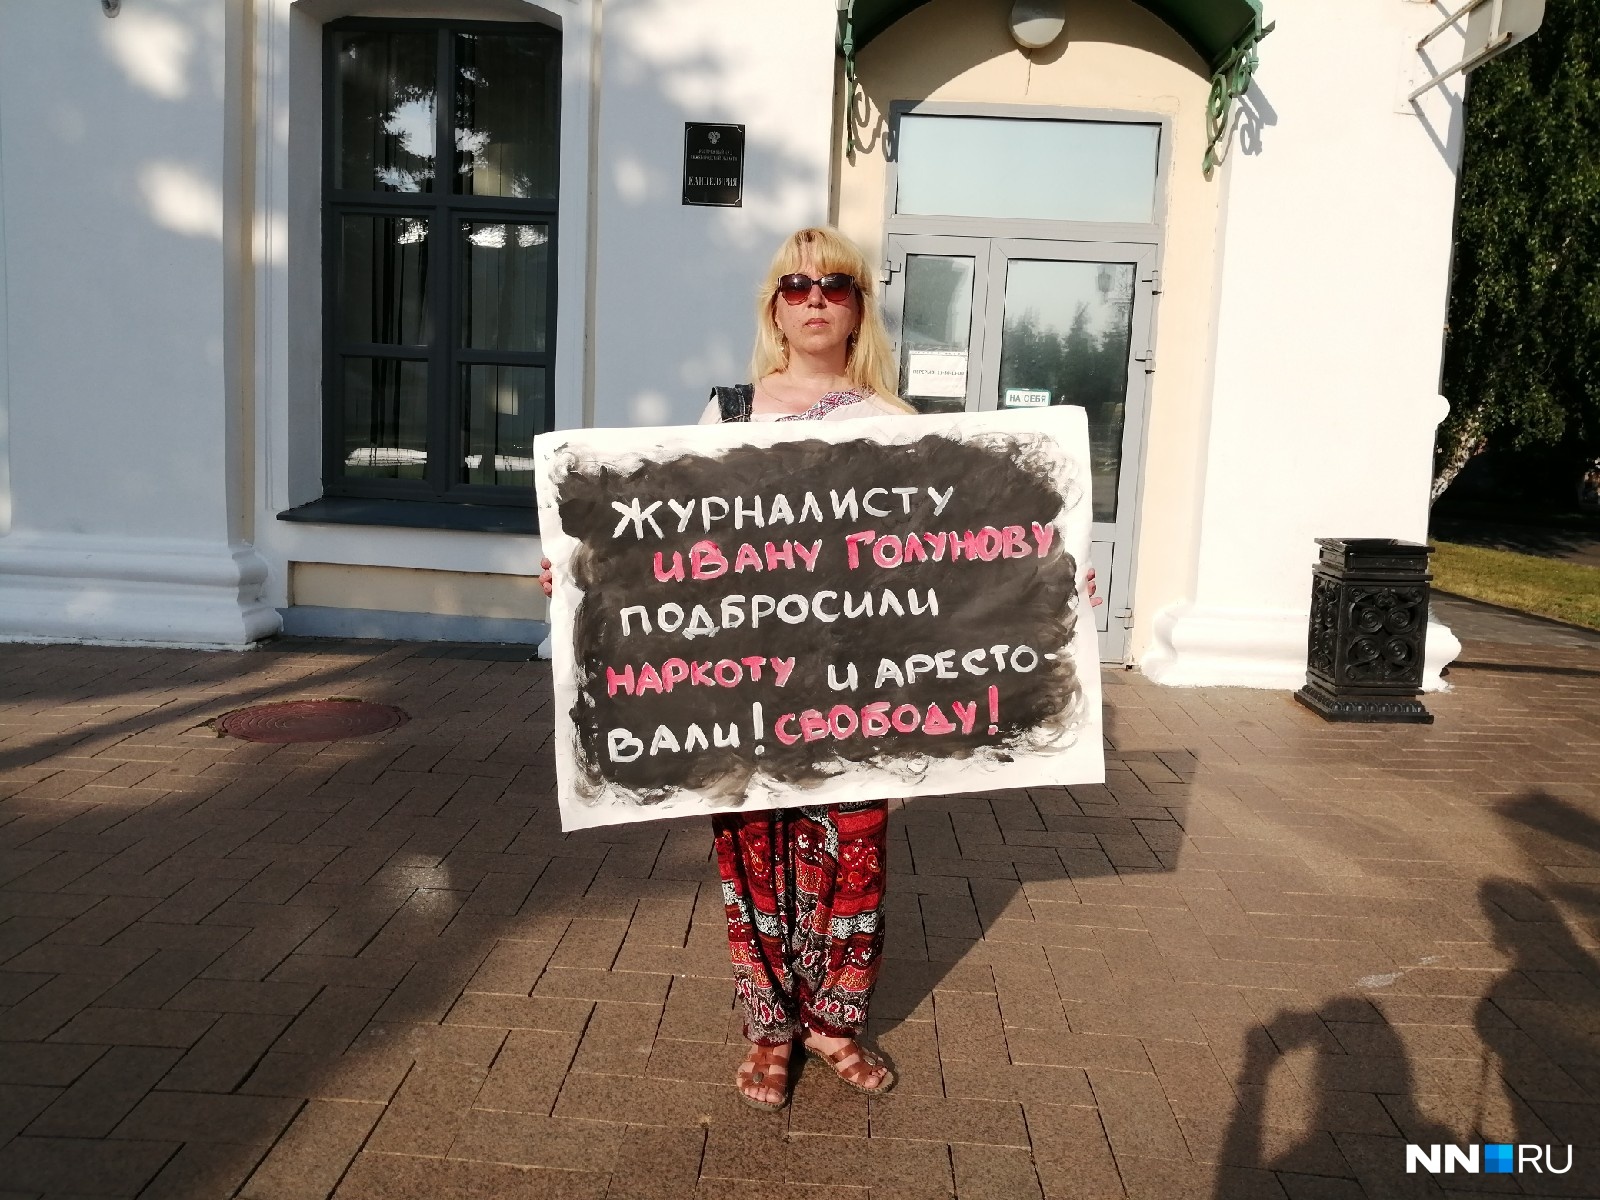 КАНЦЕЛЯРИЯ
НА СЕБЯ
ЖУРНАЛИСТУ
ИВАНУ ГОЛУНОВУ
ПОДБРОСИЛИ
НАРКОТУ И АРЕСТО-
ВАЛИ! СВОБОДУ!
NN RU